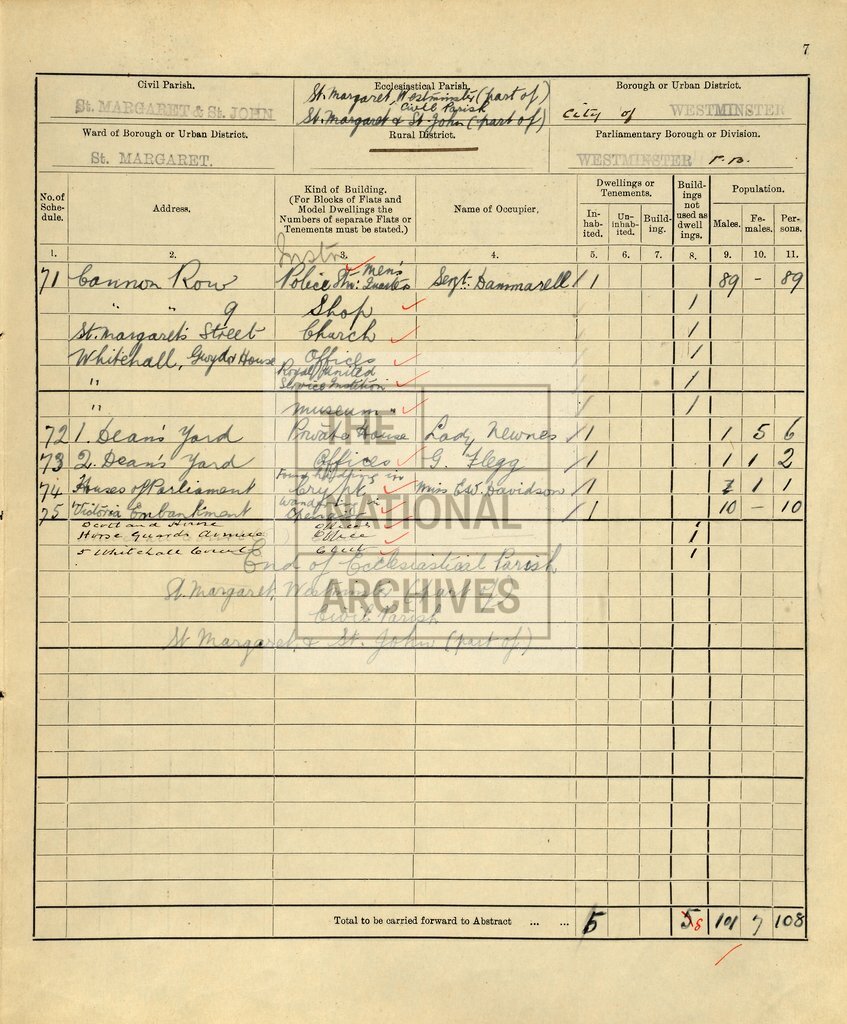 7
Civil Parish.
St. MARGARET & St. JOHN
Ecclesiastical Parish.
St. Margaret, Westminster (part of)
Civil Parish
St. Margaret & St. John (part of)
Borough or Urban District.
City of WESTMINSTER
Ward of Borough or Urban District.
St. MARGARET.
Rural District.
Parliamentary Borough or Division.
WESTMINSTER P.B.
No. of Schedule.
Address.
Kind of Building.
(For Blocks of Flats and
Model Dwellings the
Numbers of separate Flats or
Tenements must be stated.)
Name of Occupier.
Dwellings or Tenements.
Inhabited.
Uninhabited.
Building.
Buildings not used as dwellings.
Population.
Males.
Females.
Persons.
1. 2. 3. 4. 5. 6. 7. 8. 9. 10. 11.
Instn
71 Cannon Row Police Stn: Men's Quarters Sergt. Dammarell 1 89 - 89
" " 9 Shop 1
St. Margaret's Street Church 1
Whitehall, Gwydor House Offices 1
" Royal United Service Instition 1
" Museum " 1
72 1. Dean's Yard Private House Lady Newnes 1 1 5 6
73 2. Dean's Yard Offices G. Flegg 1 1 1 2
74 Houses of Parliament Found hiding in Crypt Miss E.W. Davidson 1 1 1
75 Victoria Embankment 1 10 - 10
Scotland House Offices 1
Horse Guards Avenue Office 1
5 Whitehall Court Club 1
End of Ecclesiastical Parish
St. Margaret, Westminster (part of)
Civil Parish
St Margaret & St. John (part of)
THE
NATIONAL
ARCHIVES
Total to be carried forward to Abstract ... ... 5 5 8 101 7 108